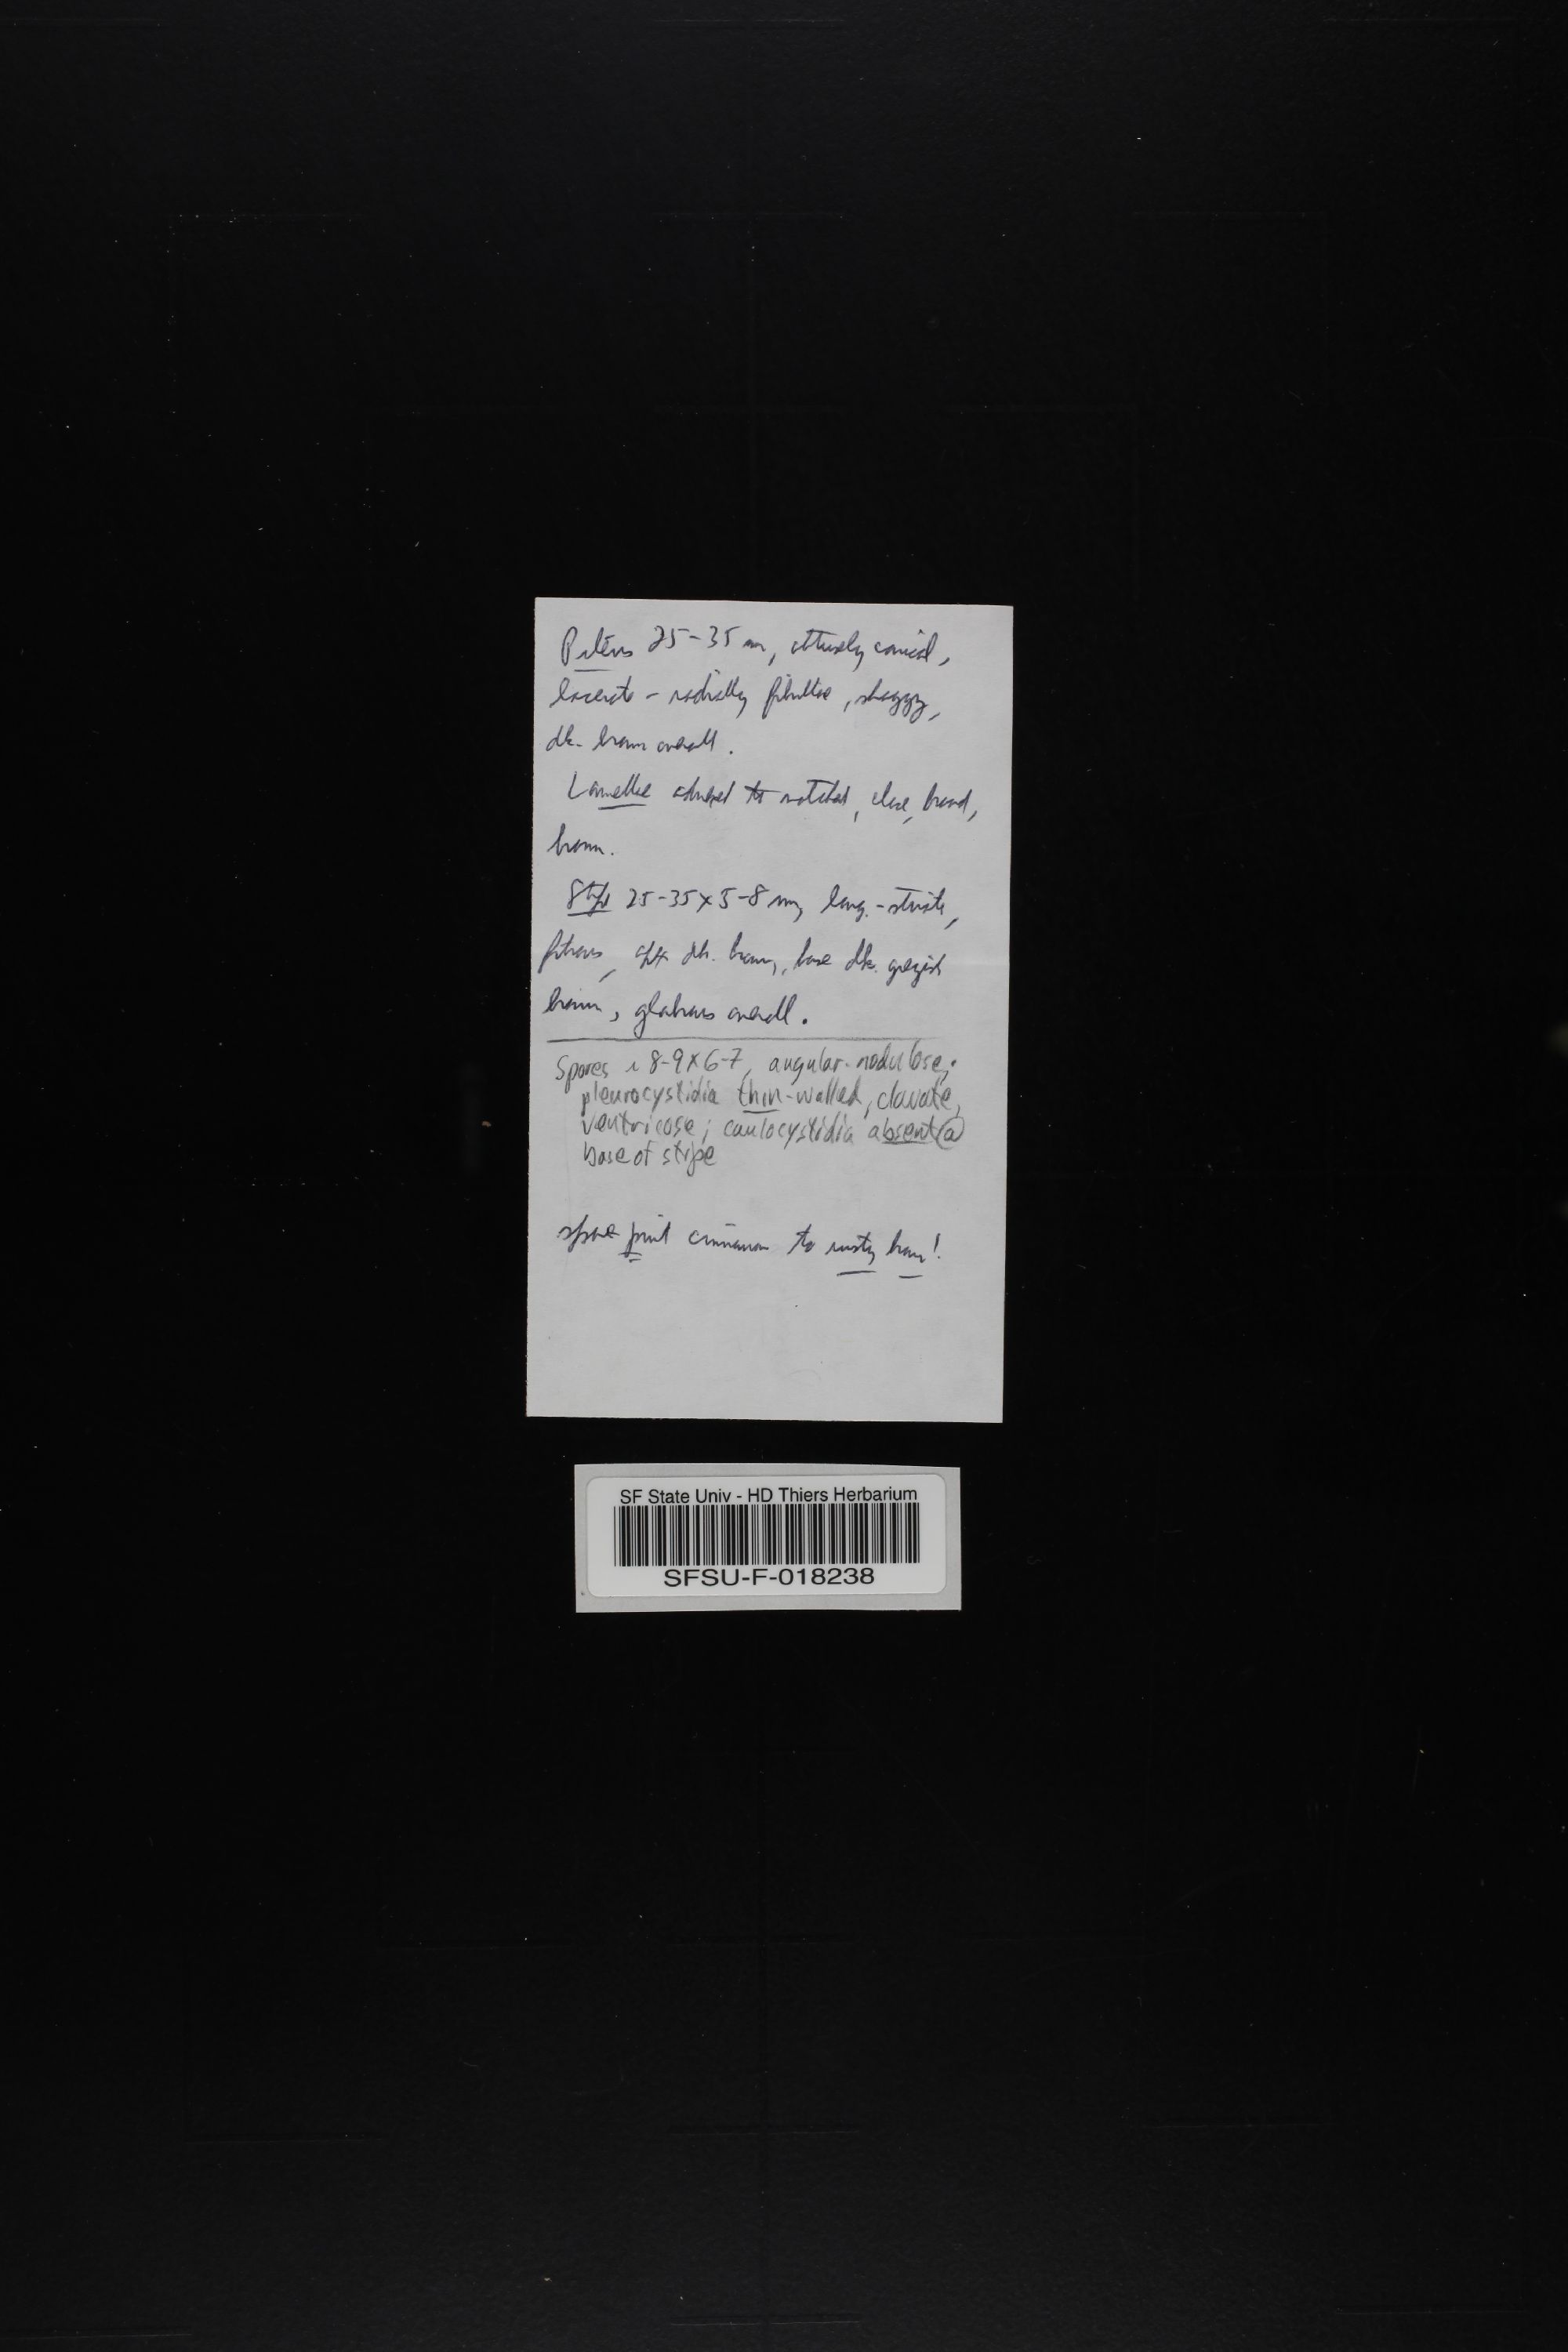 Pileus 25-35 mm, obtusely conical,
lacerate - radially fibrillose, shaggy,
dk. brown overall.
Lamellae adnexed to notched, close, broad,
brown.
Stipe 25-35 x 5-8 mm, long.-striate,
fibrous, apex dk. brown, base dk. greyish
brown, glabrous overall.
Spores ~ 8-9 x 6-7, angular-nodulose;
pleurocystidia thin-walled, clavate,
ventricose; caulocystidia absent @
base of stipe
spore print cinnamon to rusty brown!
SF State Univ - HD Thiers Herbarium
SFSU-F-018238